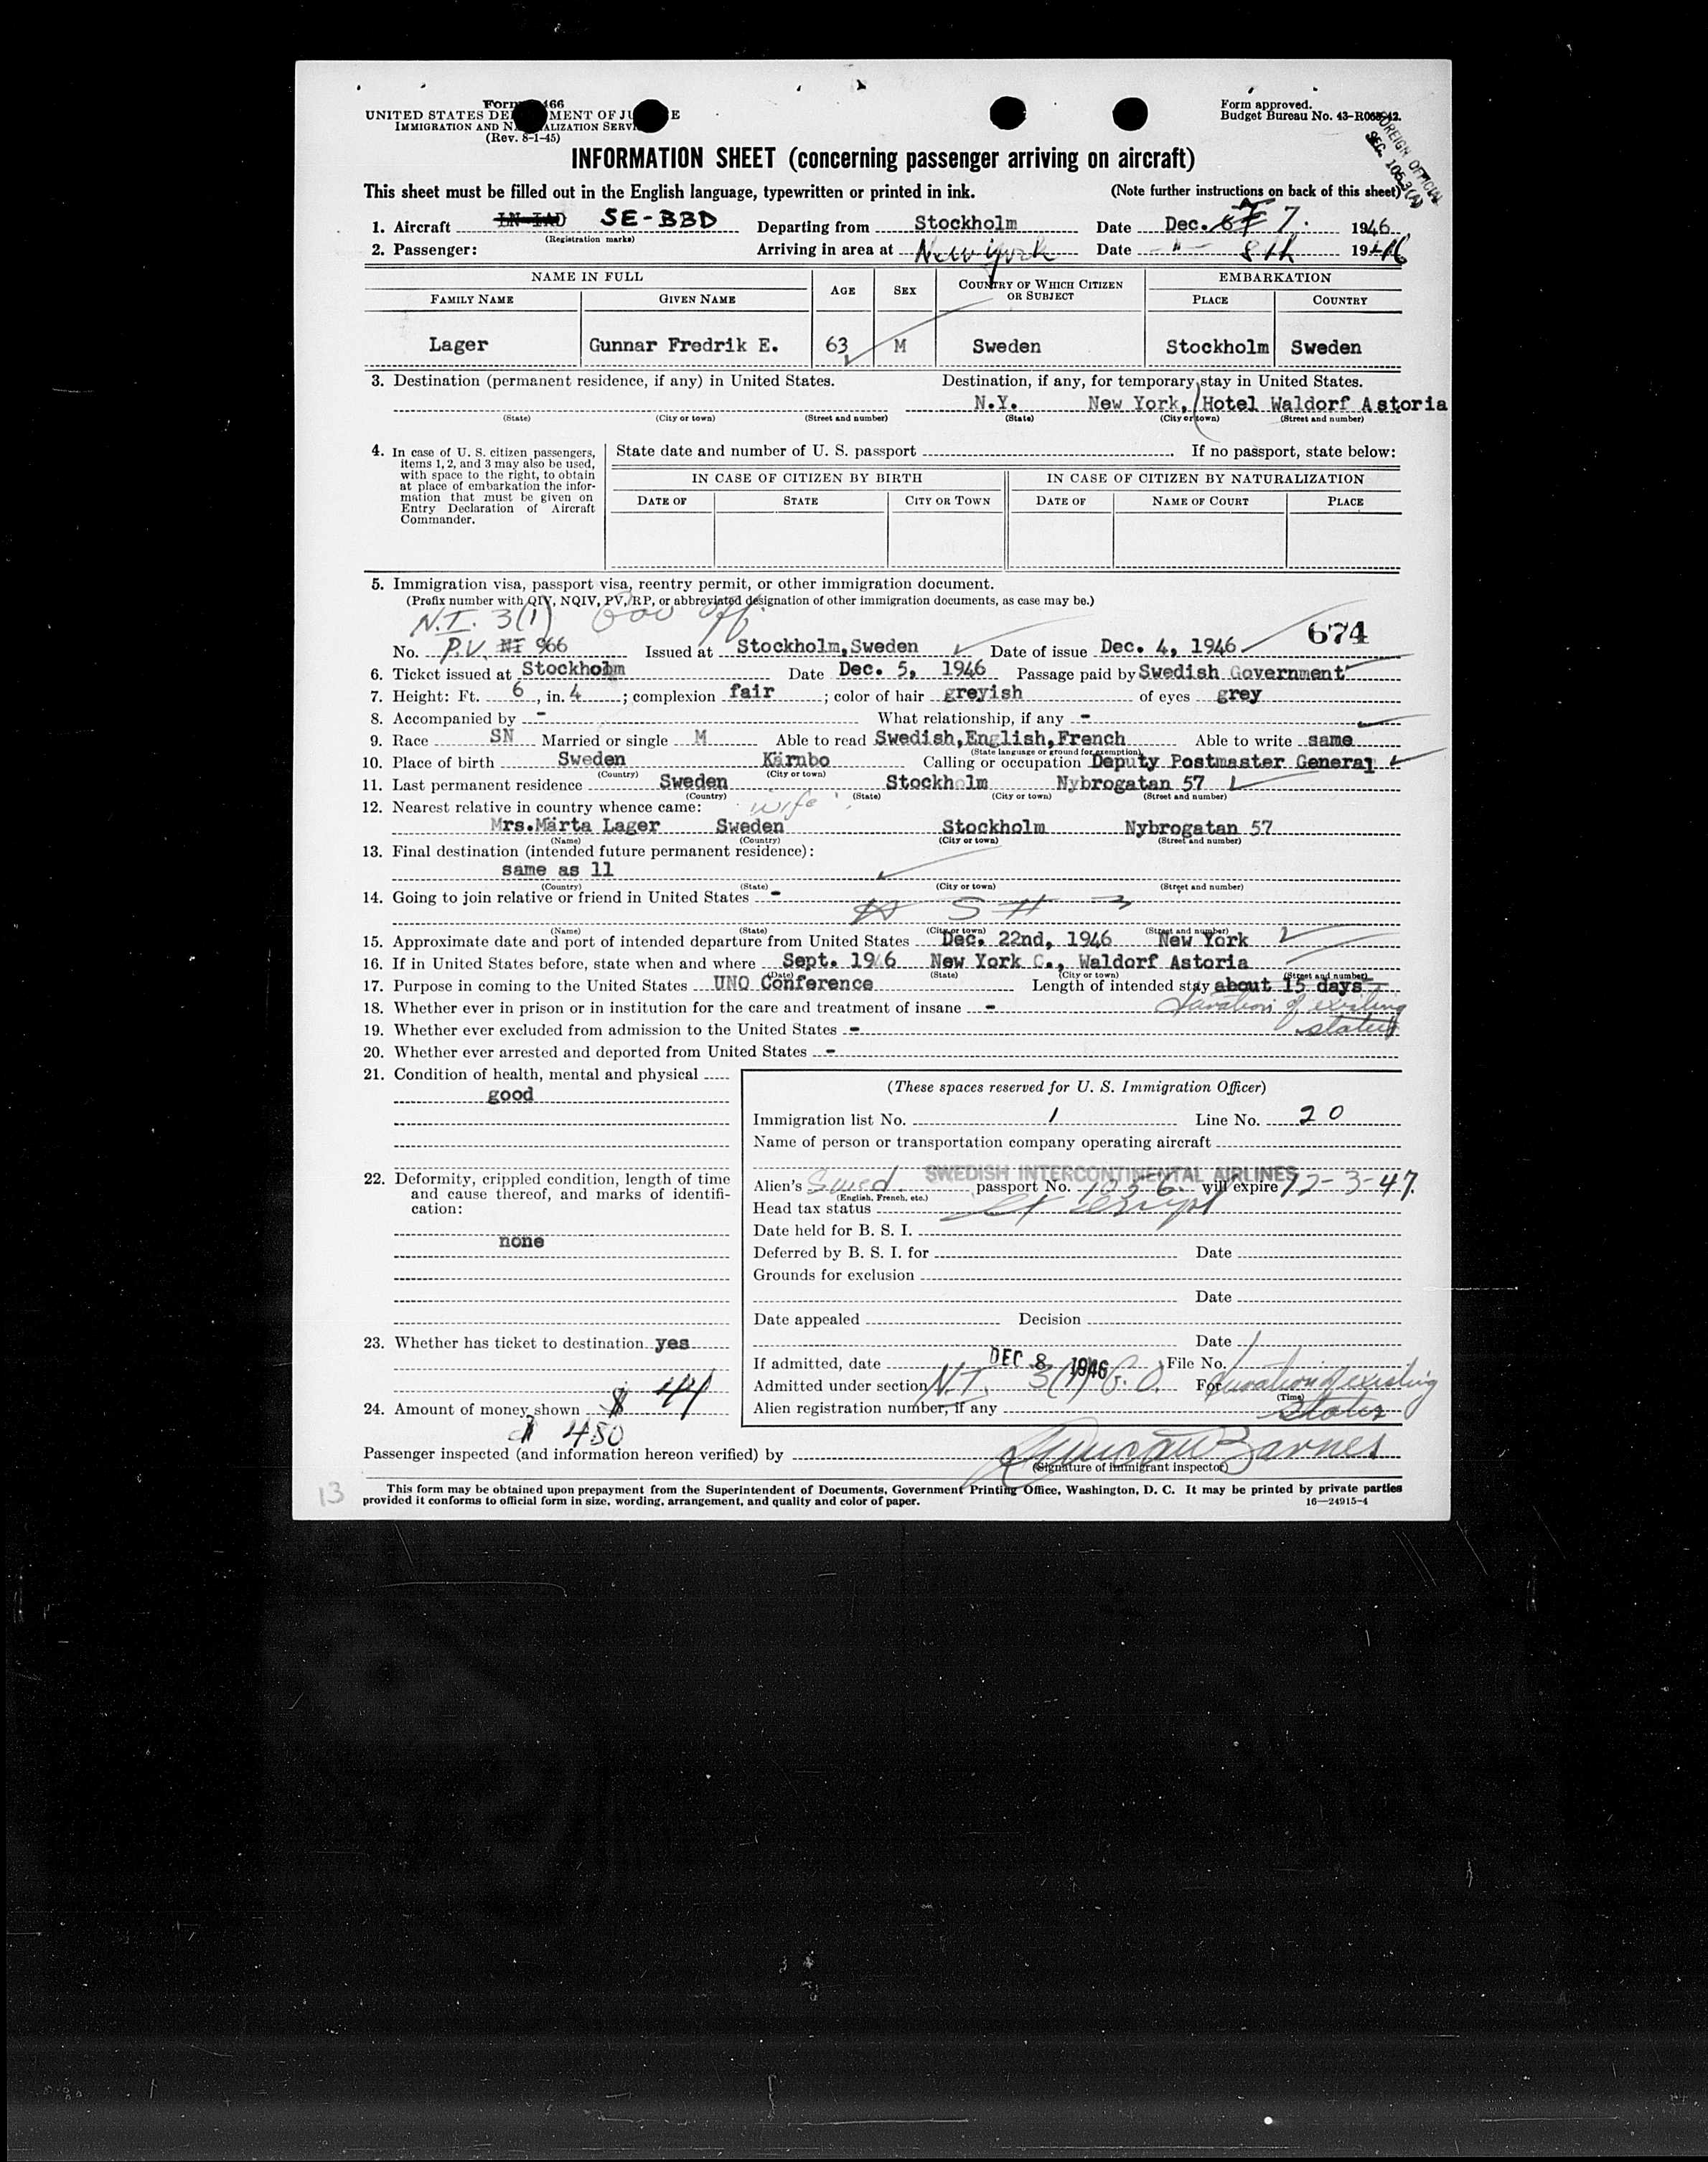 Form 466
Form approved.
UNITED STATES DE MENT OF JU E
Budget Bureau No. 43-R065-42.
IMMIGRATION AND N ALIZATION SERV
(Rev. 8-1-45)
FOREIGN OFFICIAL
SEC. 105.3(A)
INFORMATION SHEET (concerning passenger arriving on aircraft)
This sheet must be filled out in the English language, typewritten or printed in ink. (Note further instructions on back of this sheet)
1. Aircraft LN-IAD SE-BBD Departing from Stockholm Date Dec. 7. 1946
(Registration marks)
2. Passenger: Arriving in area at New York Date -"- 8th 1946
NAME IN FULL AGE SEX COUNTRY OF WHICH CITIZEN OR SUBJECT EMBARKATION
FAMILY NAME GIVEN NAME PLACE COUNTRY
Lager Gunnar Fredrik E. 63 M Sweden Stockholm Sweden
3. Destination (permanent residence, if any) in United States. Destination, if any, for temporary stay in United States.
N.Y. New York, Hotel Waldorf Astoria
(State) (City or town) (Street and number) (State) (City or town) (Street and number)
4. In case of U. S. citizen passengers, items 1, 2, and 3 may also be used, with space to the right, to obtain at place of embarkation the information that must be given on Entry Declaration of Aircraft Commander.
State date and number of U. S. passport If no passport, state below:
IN CASE OF CITIZEN BY BIRTH IN CASE OF CITIZEN BY NATURALIZATION
DATE OF STATE CITY OR TOWN DATE OF NAME OF COURT PLACE
5. Immigration visa, passport visa, reentry permit, or other immigration document.
(Prefix number with QIV, NQIV, PV, RP, or abbreviated designation of other immigration documents, as case may be.)
N.I. 3(1) Gov Off.
674
No. P.V. NI 966 Issued at Stockholm,Sweden Date of issue Dec. 4, 1946
6. Ticket issued at Stockholm Date Dec. 5, 1946 Passage paid by Swedish Government
7. Height: Ft. 6, in. 4; complexion fair; color of hair greyish of eyes grey
8. Accompanied by - What relationship, if any -
9. Race SN Married or single M Able to read Swedish,English,French Able to write same
(State language or ground for exemption)
10. Place of birth Sweden Kärnbo Calling or occupation Deputy Postmaster General
(Country) (City or town)
11. Last permanent residence Sweden Stockholm Nybrogatan 57
(Country) (State) (City or town) (Street and number)
12. Nearest relative in country whence came: wife
Mrs.Märta Lager Sweden Stockholm Nybrogatan 57
(Name) (Country) (City or town) (Street and number)
13. Final destination (intended future permanent residence):
same as 11
(Country) (State) (City or town) (Street and number)
14. Going to join relative or friend in United States -
(Name) (State) (City or town) (Street and number)
15. Approximate date and port of intended departure from United States Dec. 22nd, 1946 New York
16. If in United States before, state when and where Sept. 1946 New York C., Waldorf Astoria
(Date) (State) (City or town) (Street and number)
17. Purpose in coming to the United States UNO Conference Length of intended stay about 15 days
duration of existing status
18. Whether ever in prison or in institution for the care and treatment of insane -
19. Whether ever excluded from admission to the United States -
20. Whether ever arrested and deported from United States -
21. Condition of health, mental and physical
good
22. Deformity, crippled condition, length of time and cause thereof, and marks of identification:
none
23. Whether has ticket to destination yes
24. Amount of money shown $ 44
$ 450
(These spaces reserved for U. S. Immigration Officer)
Immigration list No. 1 Line No. 20
Name of person or transportation company operating aircraft
SWEDISH INTERCONTINENTAL AIRLINES
Alien's Swed. passport No. 1056 will expire 12-3-47.
(English, French, etc.)
Head tax status exempt
Date held for B. S. I.
Deferred by B. S. I. for Date
Grounds for exclusion
Date
Date appealed Decision
Date
If admitted, date DEC 8 1946 File No.
Admitted under section N.I. 3(1) G.O. For duration of existing status
(Time)
Alien registration number, if any
Passenger inspected (and information hereon verified) by Duncan Barnes
(Signature of immigrant inspector)
13
This form may be obtained upon prepayment from the Superintendent of Documents, Government Printing Office, Washington, D. C. It may be printed by private parties
provided it conforms to official form in size, wording, arrangement, and quality and color of paper. 16—24915-4